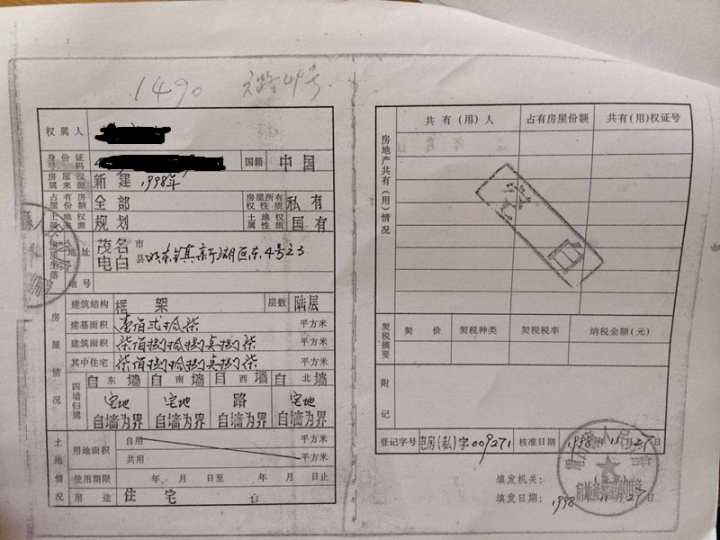 1490 元路49号
权属人
身份证号码 国籍 中国
房屋来源 新建 1998年
占有房屋份额 全部 房屋所有权性质 私有
土地来源 规划 土地权属性质 国有
地址 茂名市电白县 镇新湖区东4号23
地号
房屋情况
建筑结构 框架 层数 陆层
建基面积 壹佰贰拾柒 平方米
建筑面积 平方米
其中住宅 平方米
四墙归属
自东墙 自南墙 自西墙 自北墙
宅地 宅地 路 宅地
自墙为界 自墙为界 自墙为界 自墙为界
土地情况
用地面积 自用 平方米
共用 平方米
使用期限 年 月 日至 年 月 日止
用途 住宅
房地产共有(用)情况
共有(用)人 占有房屋份额 共有(用)权证号
契税摘要
契价 契税种类 契税税率 纳税金额(元)
附记
登记字号 房(私)字009271 核准日期 1998年11月27日
填发机关:
填发日期: 1998 11月27日